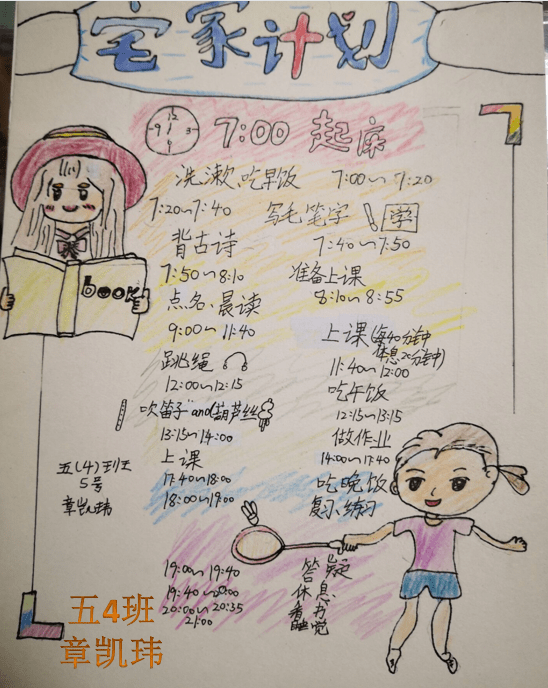 宅家计划
12
9 3
6
7:00 起床
洗漱、吃早饭 7:00~7:20
7:20~7:40 写毛笔字 学
背古诗 7:40~7:50
7:50~8:10 准备上课
点名、晨读 8:10~8:55
9:00~11:40 上课(每40分钟
休息20分钟)
跳绳 11:40~12:00
12:00~12:15 吃午饭
吹笛子"and葫芦丝 12:15~13:15
13:15~14:00 做作业
上课 14:00~17:40
17:40~18:00 吃晚饭
18:00~19:00 复习、练习
book
五(4)班
5号
章凯玮
19:00~19:40 答疑
19:40~20:00 休息
20:00~20:35 看书
21:00 睡觉
五4班
章凯玮